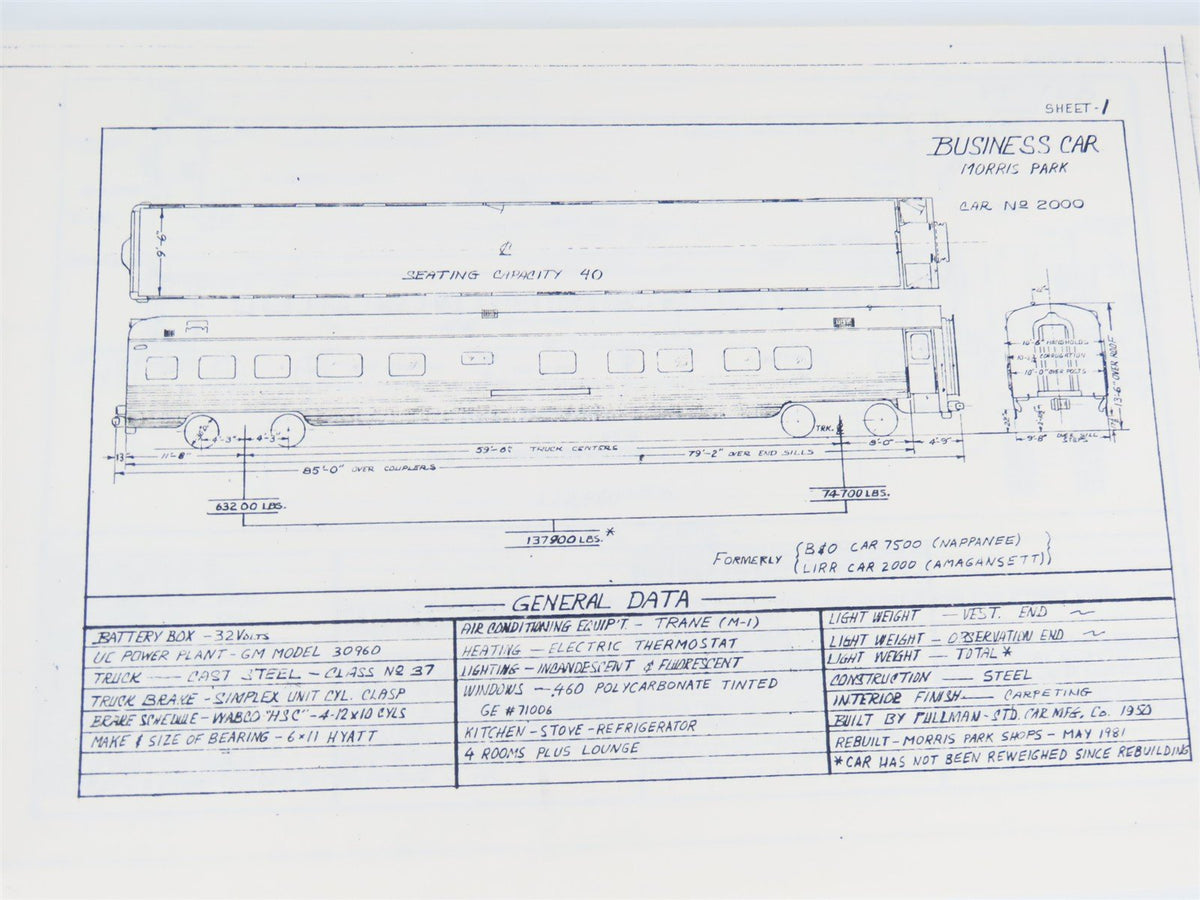 SHEET-1
BUSINESS CAR
MORRIS PARK
CAR Nº 2000
9'-6"
℄
SEATING CAPACITY 40
10'-6" HANDHOLDS
CORRUGATION
10'-0" OVER POSTS
13'-6" OVER ROOF
9'-8" OVER SILL STEPS
TRK.
4'-3" 4'-3"
13" 11'-8" 59'-8" TRUCK CENTERS 79'-2" OVER END SILLS 8'-0" 4'-9"
85'-0" OVER COUPLERS
63200 LBS. 74700 LBS.
137900 LBS.*
FORMERLY {B&O CAR 7500 (NAPPANEE)}
{LIRR CAR 2000 (AMAGANSETT)}
GENERAL DATA
BATTERY BOX - 32 VOLTS
UC POWER PLANT - GM MODEL 30960
TRUCK — CAST STEEL - CLASS Nº 37
TRUCK BRAKE - SIMPLEX UNIT CYL. CLASP
BRAKE SCHEDULE - WABCO "HSC" - 4-12x10 CYLS
MAKE & SIZE OF BEARING - 6x11 HYATT
AIR CONDITIONING EQUIP'T - TRANE (M-1)
HEATING - ELECTRIC THERMOSTAT
LIGHTING - INCANDESCENT & FLUORESCENT
WINDOWS - .460 POLYCARBONATE TINTED
GE #71006
KITCHEN - STOVE - REFRIGERATOR
4 ROOMS PLUS LOUNGE
LIGHT WEIGHT — VEST. END ~
LIGHT WEIGHT - OBSERVATION END ~
LIGHT WEIGHT — TOTAL *
CONSTRUCTION — STEEL
INTERIOR FINISH — CARPETING
BUILT BY PULLMAN-STD. CAR MFG. CO. 1950
REBUILT - MORRIS PARK SHOPS - MAY 1981
*CAR HAS NOT BEEN REWEIGHED SINCE REBUILDING